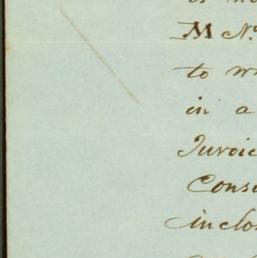 M No
to w
in a
Invoic
Cons
inclo